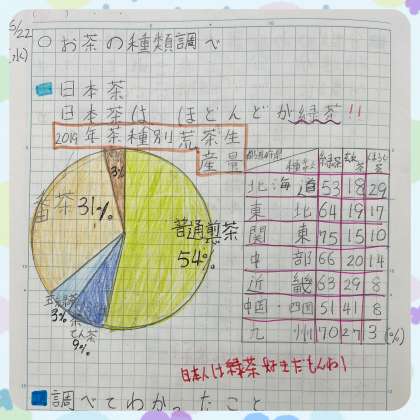 5/22
(水)
○お茶の種類調べ
日本茶
日本茶は、ほとんどが緑茶!!
2019年茶種別荒茶生
産量
3%
番茶
31%
普通煎茶
54%
3%
てん茶
9%
都道府県 種類 緑茶 ほうじ茶
北海道 53 18 29
東北 64 19 17
関東 75 15 10
中部 66 20 14
近畿 63 29 8
中国・四国 51 41 8
九州 70 27 3 (%)
日本人は緑茶好きだもんね!
調べてわかったこと